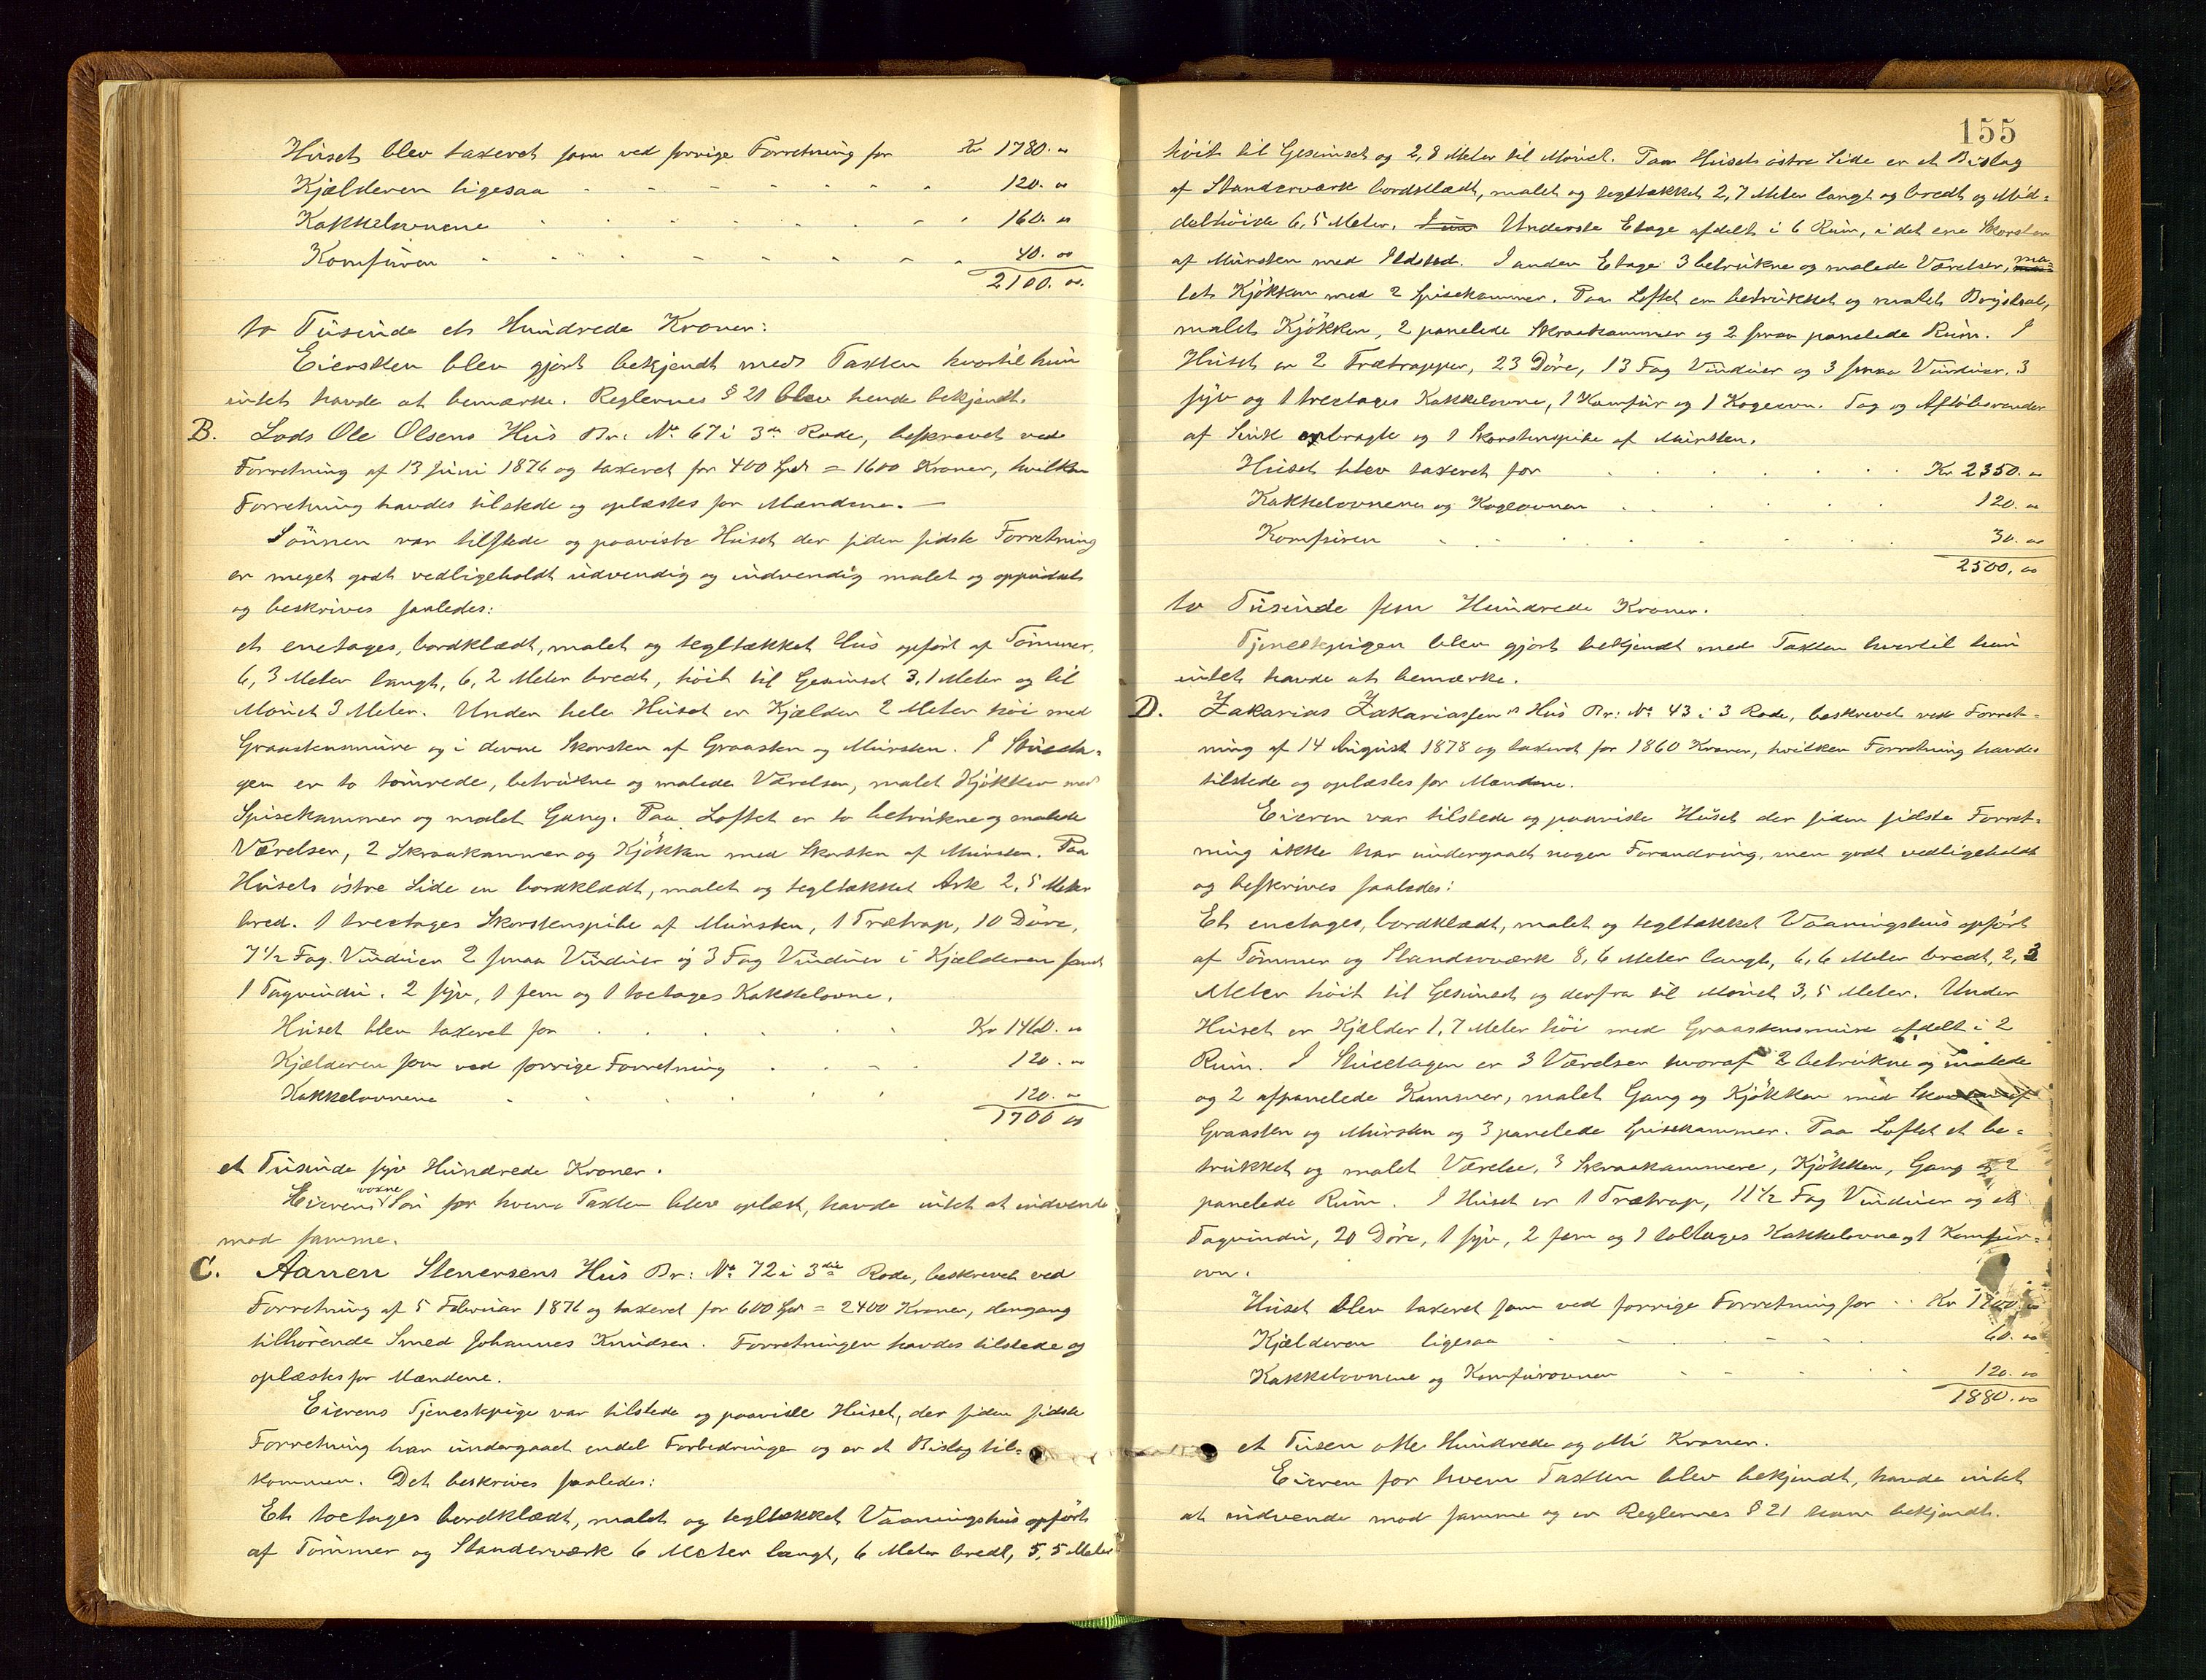 Huset blev taxeret som ved forrige Forretning for Kr 1780. 00
Kjælderen ligesaa 120. 00
Kakkelovnene 160. 00
Komfuren 40. 00
2100. 00.
to Tusinde et Hundrede Kroner:
Eiersken blev gjort bekjendt med Taxten hvortil hun
intet havde at bemærke. Reglernes § 21 blev hende bekjendt.
B. Lods Ole Olsens Hus Br: No 67 i 3die Rode, beskrevet ved
Forretning af 13 Juni 1876 og taxeret for 400 Spd = 1600 Kroner, hvilken
Forretning havdes tilstede og oplæstes for Mændene. —
Sönnen var tilstede og paaviste Huset der siden sidste Forretning
er meget godt vedligeholdt udvendig og indvendig malet og oppudset
og beskrives saaledes:
et enetages, bordklædt, malet og tegltækket Hus opfört af Tömmer,
6,3 Meter langt, 6,2 Meter bredt, höit til Gesimset 3,1 Meter og til
Mönet 3 Meter. Under hele Huset er Kjælder 2 Meter höi med
Graastensmure og i denne Skorsten af Graasten og Mursten. I Stueeta-
gen er to tömrede, betrukne og malede Værelser, malet Kjökken med
Spisekammer og malet Gang. Paa Loftet er to betrukne og malede
Værelser, 2 Skraakammer og Kjökken med Skorsten af Mursten. Paa
Husets östre Side en bordklædt, malet og tegltækket Ark 2,5 Meter
bred. 1 treetages Skorstenspibe af Mursten, 1 Trætrap, 10 Döre,
7 1/2 Fag. Vinduer 2 smaa Vinduer og 3 Fag Vinduer i Kjælderen samt
1 Tagvindu. 2 syv, 1 fem og 1 toetages Kakkelovne.
Huset blev taxeret for Kr 1460. 00
Kjælderen som ved forrige Forretning 120. 00
Kakkelovnene 120. 00
1700 00
et Tusinde syv Hundrede Kroner.
Eierens voxne Sön for hvem Taxten blev oplæst, havde intet at indvende
mod samme.
C. Aanen Stenersens Hus Br: No 72 i 3die Rode, beskrevet ved
Forretning af 5 Februar 1876 og taxeret for 600 Spd = 2400 Kroner, dengang
tilhörende Smed Johannes Knudsen. Forretningen havdes tilstede og
oplæstes for Mændene.
Eierens Tjenestepige var tilstede og paaviste Huset, der siden sidste
Forretning har undergaaet endel Forbedringer og er et Bislag til-
kommen. Det beskrives saaledes:
Et toetages bordklædt, malet og tegltækket Vaaningshus opfört
af Tömmer og Standerværk 6 Meter langt, 6 Meter bredt, 5,5 Meter
155
höit til Gesimset og 2,8 Meter til Mönet. Paa Husets östre Side er et Bislag
af Standerværk bordklædt, malet og tegltækket 2,7 Meter langt og bredt og Mid-
delhöide 6,5 Meter. Underste Etage afdelt i 6 Rum, i det ene Skorsten
af Mursten med Ildsted. I anden Etage 3 betrukne og malede Værelser, ma-
let Kjökken med 2 Spisekammer. Paa Loftet en betrukket og malet
malet Kjökken, 2 panelede Skraakammer og 2 smaa panelede Rum. I
Huset er 2 Trætrapper, 23 Döre, 13 Fag Vinduer og 3 smaa Vinduer. 3
syv og 1 treetages Kakkelovne, 1 Komfur og 1 Kogeovn. Tag og Aflöbsrender
af Sink anbragte og 1 Skorstenspibe af Mursten.
Huset blev taxeret for Kr. 2350. 00
Kakkelovnene og Kogeovnen 120. 00
Komfuren 30. 00
2500, 00
to Tusinde fem Hundrede Kroner.
Tjenestepigen blev gjort bekjendt med Taxten hvortil hun
intet havde at bemærke.
D. Zakarias Zakariassens Hus Br: No 43 i 3 Rode, beskrevet ved Forret-
ning af 14 August 1878 og taxeret for 1860 Kroner, hvilken Forretning havdes
tilstede og oplæstes for Mændene.
Eieren var tilstede og paaviste Huset der siden sidste Forret-
ning ikke har undergaaet nogen Forandring, men godt vedligeholdt
og beskrives saaledes:
Et enetages, bordklædt, malet og tegltækket Vaaningshus opfört
af Tömmer og Standerværk 8,6 Meter langt, 6,6 Meter bredt, 2,3
Meter höit til Gesimset og derfra til Mönet 3,5 Meter. Under
Huset er Kjælder 1,7 Meter höi med Graastensmure afdelt i 2
Rum. I Stueetagen er 3 Værelser hvoraf 2 betrukne og malede
og 2 afpanelede Kammer, malet Gang og Kjökken med Skorsten af
Graasten og Mursten og 3 panelede Spisekammer. Paa Loftet et be-
trukket og malet Værelse, 3 Skraakammere, Kjökken, Gang og 2
panelede Rum. I Huset er 1 Trætrap, 11 1/2 Fag Vinduer og et
Tagvindu, 20 Döre, 1 syv, 2 fem og 1 toetages Kakkelovne og 1 Komfur-
ovn.
Huset blev taxeret som ved forrige Forretning for Kr 1700. 00
Kjælderen ligesaa 60. 00
Kakkelovnene og Komfurovnen 120. 00
1880. 00
et Tusen otte Hundrede og otti Kroner.
Eieren for hvem Taxten blev bekjendt, havde intet
at indvende mod samme og er Reglernes § 21 ham bekjendt.